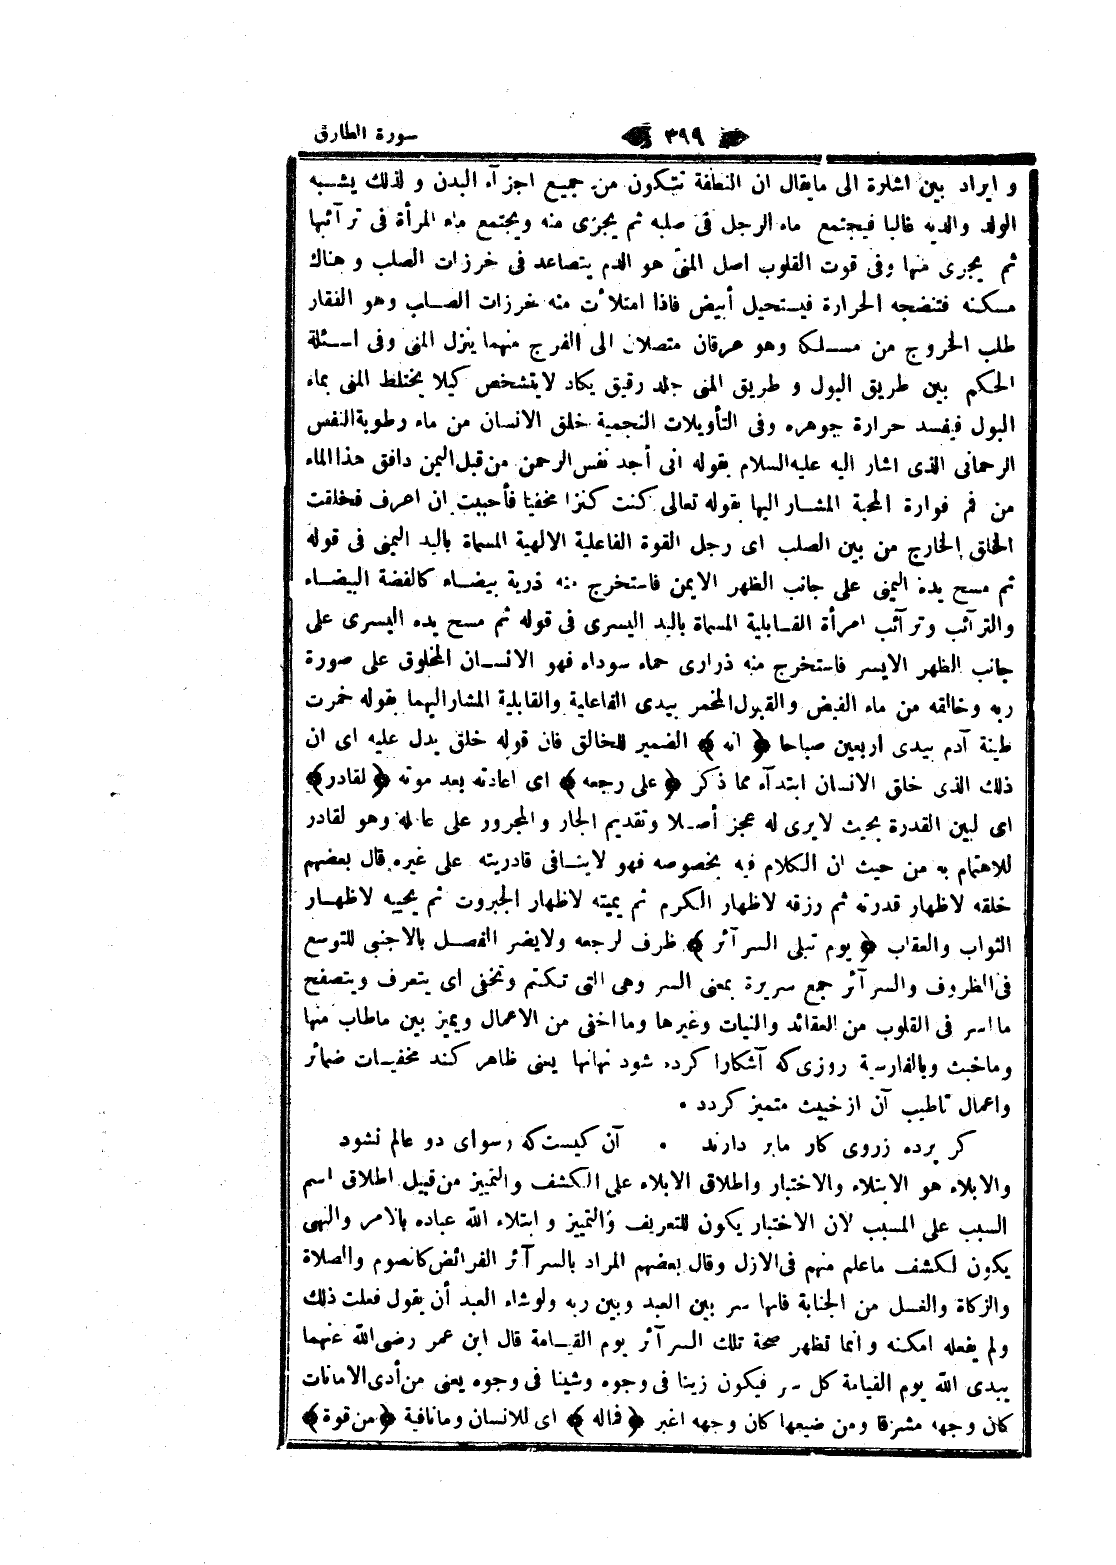 سورة الطارق ٣٩٩
و ايراد بين اشارة الى مايقال ان النطفة تتكون من جميع اجزآء البدن و لذلك يشبه
الولد والديه غالبا فيجتمع ماء الرجل فى صلبه ثم يجرى منه ويجتمع ماء المرأة فى ترآئبها
ثم يجرى منها وفى قوت القلوب اصل المنىّ هو الدم يتصاعد فى خرزات الصلب و هناك
مسكنه فتنضجه الحرارة فيستحيل أبيض فاذا امتلأت منه خرزات الصلب وهو الفقار
طلب الخروج من مسلكه وهو عرقان متصلان الى الفرج منهما ينزل المنى وفى اسئلة
الحكم بين طريق البول و طريق المنى جلد رقيق يكاد لايتشخص كيلا يختلط المنى بماء
البول فيفسد حرارة جوهره وفى التأويلات النجمية خلق الانسان من ماء رطوبةالنفس
الرحمانى الذى اشار اليه عليه‌السلام بقوله انى أجد نفس‌الرحمن من‌قبل‌اليمن دافق هذاالماء
من فم فوارة المحبة المشار اليها بقوله تعالى كنت كنزا مخفيا فأحببت ان اعرف فخلقت
الخلق الخارج من بين الصلب اى رجل القوة الفاعلية الالهية المسماة باليد اليمنى فى قوله
ثم مسح يده اليمنى على جانب الظهر الايمن فاستخرج منه ذرية بيضاء كالفضة البيضاء
والترآئب وترآئب امرأة القابلية المسماة باليد اليسرى فى قوله ثم مسح يده اليسرى على
جانب الظهر الايسر فاستخرج منه ذرارى حماء سوداء فهو الانسان المخلوق على صورة
ربه وخالقه من ماء الفيض والقبول‌المخمر بيدى الفاعلية والقابلية المشاراليهما بقوله خمرت
طينة آدم بيدى اربعين صباحا ﴿ انه ﴾ الضمير للخالق فان قوله خلق يدل عليه اى ان
ذلك الذى خلق الانسان ابتدآء مما ذكر ﴿ على رجعه ﴾ اى اعادته بعد موته ﴿ لقادر﴾
اى لبين القدرة بحيث لايرى له عجز أصلا وتقديم الجار والمجرور على عامله وهو لقادر
للاهتمام به من حيث ان الكلام فيه بخصوصه فهو لاينافى قادريته على غيره قال بعضهم
خلقه لاظهار قدرته ثم رزقه لاظهار الكرم ثم يميته لاظهار الجبروت ثم يحييه لاظهار
الثواب والعقاب ﴿ يوم تبلى السرآئر ﴾ ظرف لرجعه ولايضر الفصل بالاجنبى للتوسع
فى‌الظروف والسرآئر جمع سريرة بمعنى السر وهى التى تكتم وتخفى اى يتعرف ويتصفح
مااسر فى القلوب من العقائد والنيات وغيرها ومااخفى من الاعمال ويميز بين ماطاب منها
وماخبث وبالفارسية روزى‌كه آشكارا كرده شود نهانها يعنى ظاهر كند مخفيات ضمائر
واعمال تاطيب آن از خبيث متميز كردد •
كر پرده زروى كار مابر دارند • آن كيست‌كه رسواى دو عالم نشود
والابلاء هو الابتلاء والاختبار واطلاق الابلاء على الكشف والتمييز من‌قبيل اطلاق اسم
السبب على المسبب لان الاختبار يكون للتعريف والتمييز و ابتلاء الله عباده بالامر والنهى
يكون لكشف ماعلم منهم فى‌الازل وقال بعضهم المراد بالسرآئر الفرائض كالصوم والصلاة
والزكاة والغسل من الجنابة فانها سر بين العبد وبين ربه ولوشاء العبد أن يقول فعلت ذلك
ولم يفعله امكنه وانما تظهر صحة تلك السرآئر يوم القيامة قال ابن عمر رضى‌الله عنهما
يبدى الله يوم القيامة كل سر فيكون زينا فى وجوه وشينا فى وجوه يعنى من‌أدى‌الامانات
كان وجهه مشرقا ومن ضيعها كان وجهه اغبر ﴿ فماله ﴾ اى للانسان ومانافية ﴿من قوة﴾